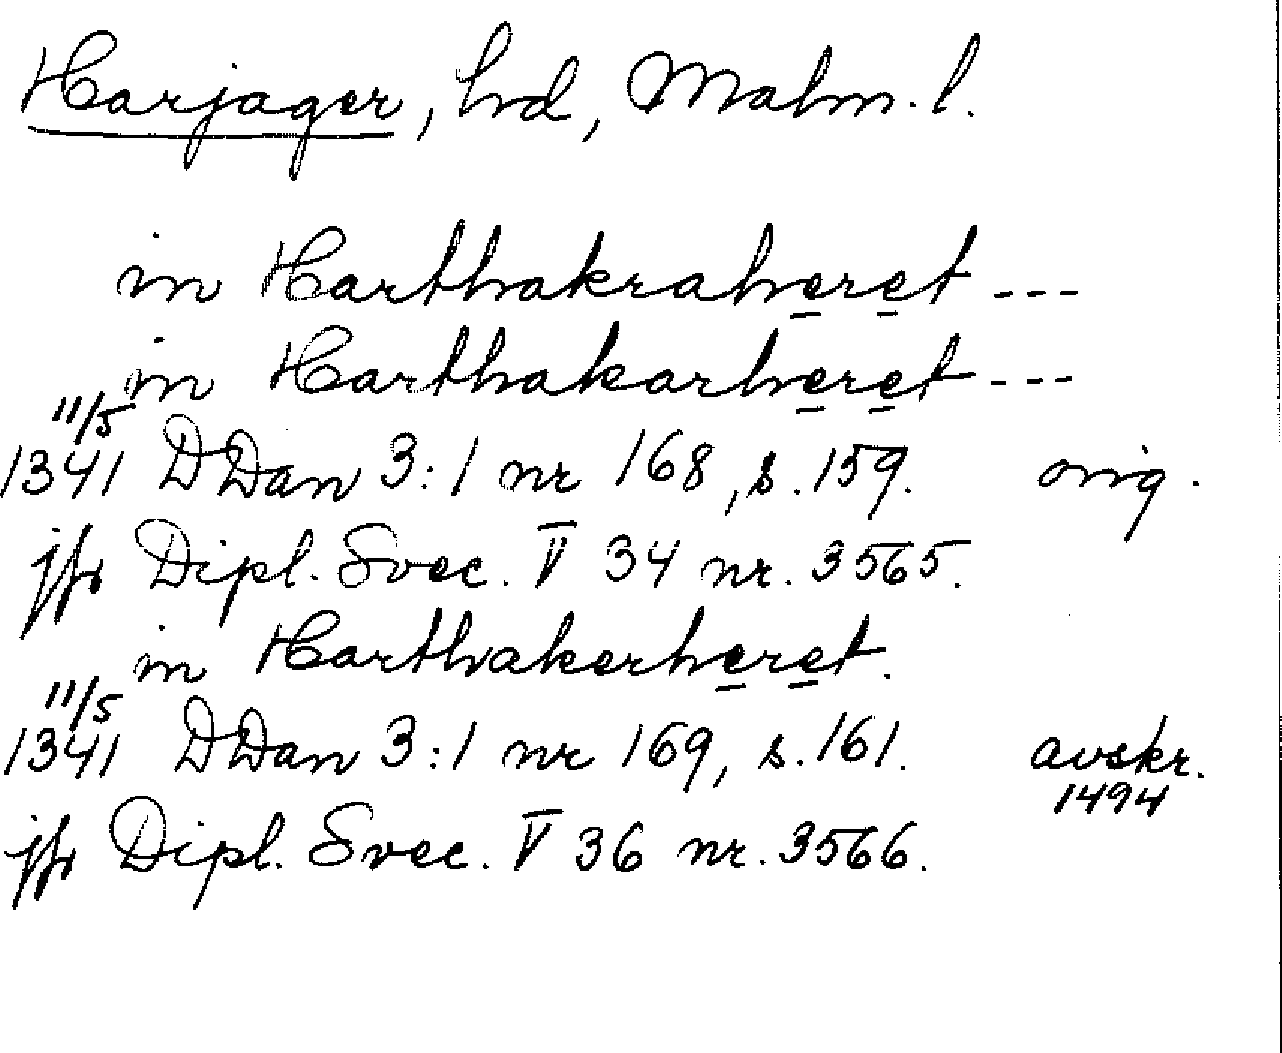 Harjager, hd, Malm. l.
in Harthakraheret ---
in Harthakarheret ---
11/5
1341 DDan 3:1 nr 168, s. 159. orig.
jfr Dipl. Svec. V 34 nr. 3565.
in Harthakerheret.
11/5
1341 DDan 3:1 nr 169, s. 161. avskr.
1494
jfr Dipl. Svec. V 36 nr. 3566.